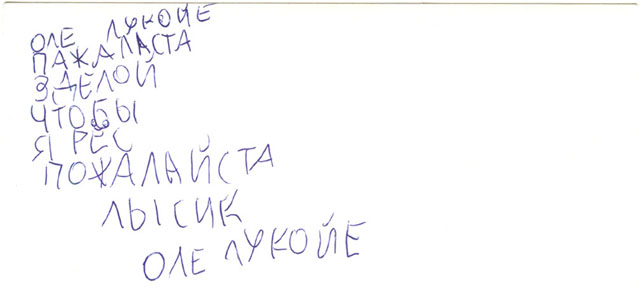 ОЛЕ ЛУКОЙЕ
ПАЖАЛАСТА
ЗДЕЛОЙ
ЧТОБЫ
Я РЁС
ПОЖАЛАЙСТА
ЛЫСИК
ОЛЕ ЛУКОЙЕ